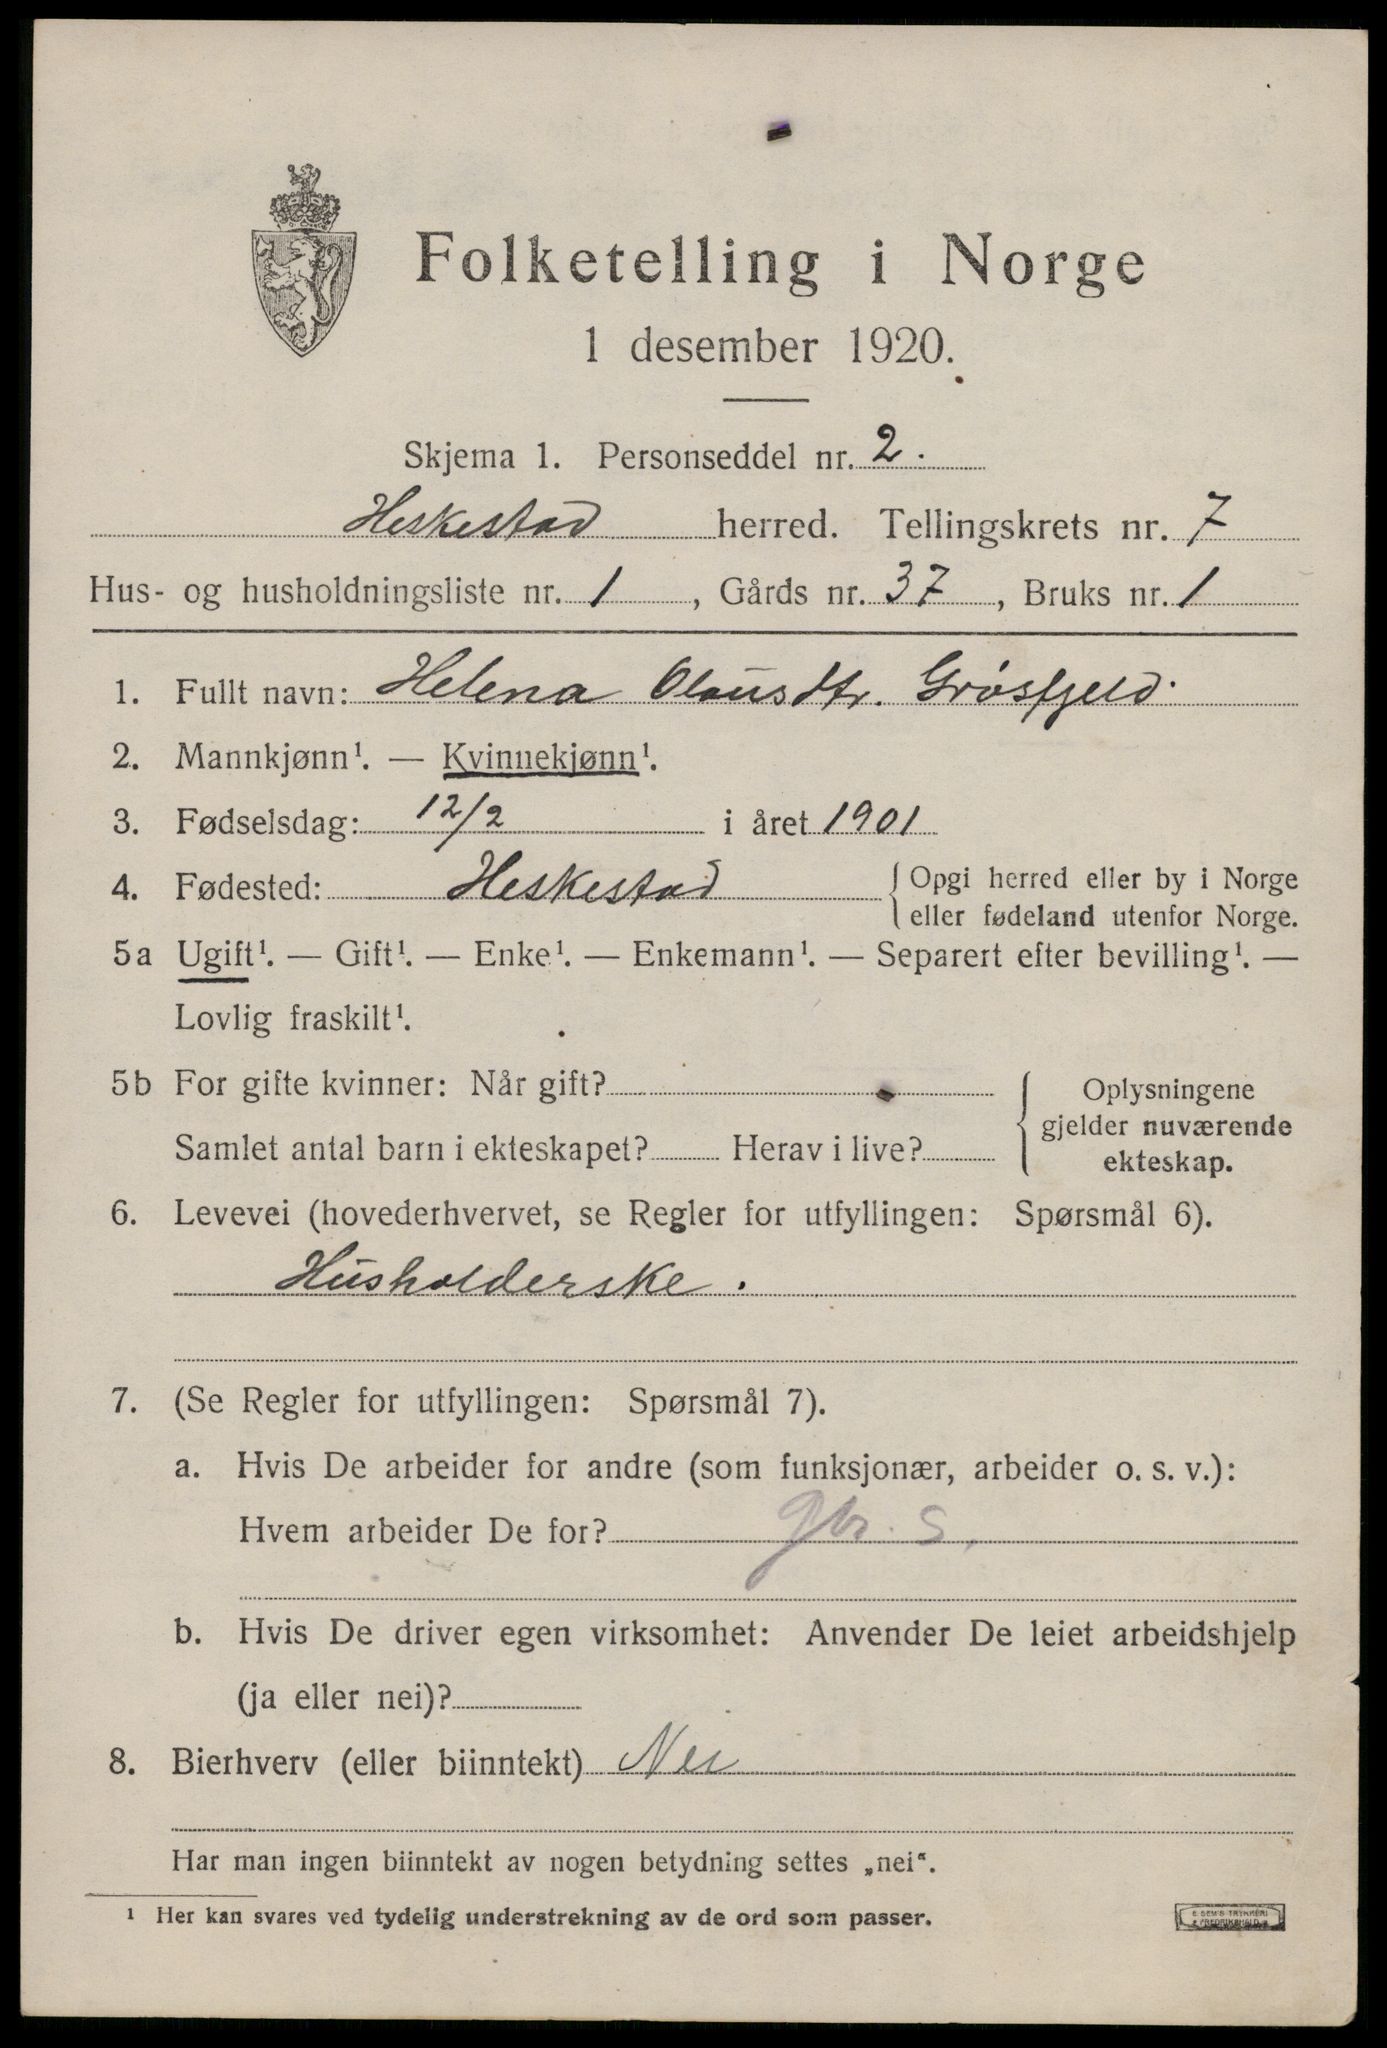 Folketelling i Norge
1 desember 1920.
Skjema 1. Personseddel nr. 2.
Heskestad herred. Tellingskrets nr. 7
Hus- og husholdningsliste nr. 1, Gårds nr. 37, Bruks nr. 1
1. Fullt navn: Helena Olausdtr. Grøsfjeld.
2. Mannkjønn¹. — Kvinnekjønn¹.
3. Fødselsdag: 12/2 i året 1901
4. Fødested: Heskestad { Opgi herred eller by i Norge
eller fødeland utenfor Norge.
5a Ugift¹. — Gift¹. — Enke¹. — Enkemann¹. — Separert efter bevilling¹. —
Lovlig fraskilt¹.
5b For gifte kvinner: Når gift?
Samlet antal barn i ekteskapet? Herav i live?
Oplysningene
gjelder nuværende
ekteskap.
6. Levevei (hovederhvervet, se Regler for utfyllingen: Spørsmål 6).
Husholderske.
7. (Se Regler for utfyllingen: Spørsmål 7).
a. Hvis De arbeider for andre (som funksjonær, arbeider o. s. v.):
Hvem arbeider De for? gbr. s.
b. Hvis De driver egen virksomhet: Anvender De leiet arbeidshjelp
(ja eller nei)?
8. Bierhverv (eller biinntekt) Nei
Har man ingen biinntekt av nogen betydning settes „nei“.
¹ Her kan svares ved tydelig understrekning av de ord som passer.
E. SEM'S TRYKKERI
FREDRIKSHALD